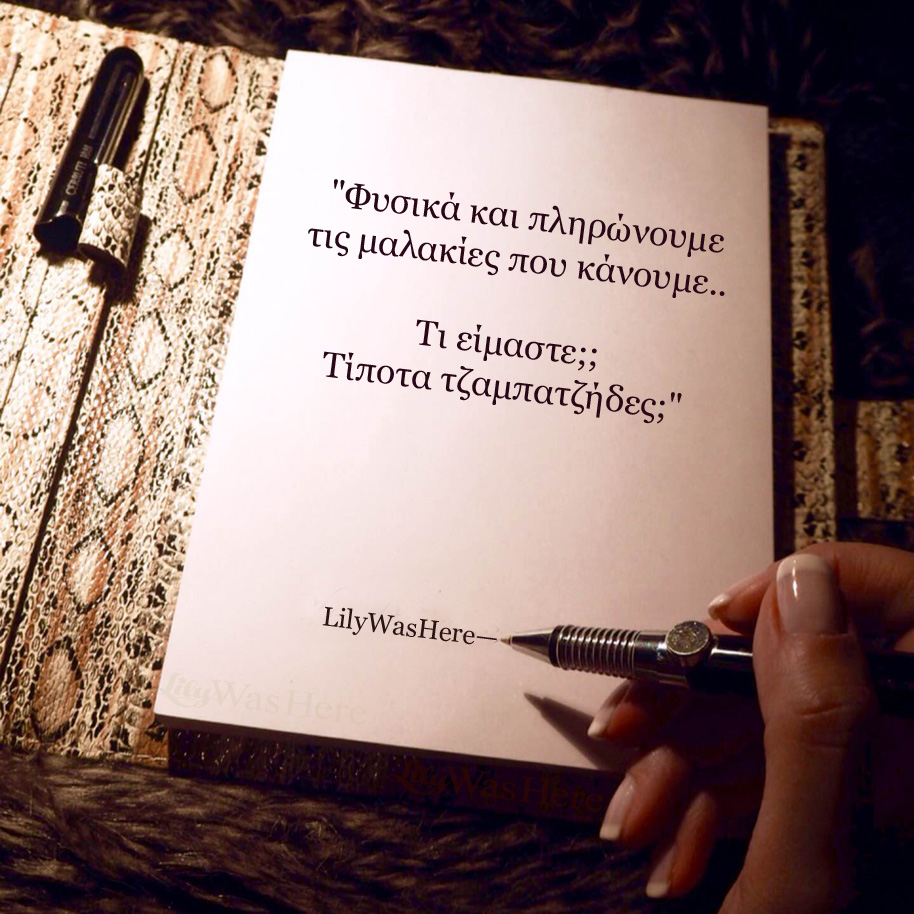 "Φυσικά και πληρώνουμε
τις μαλακίες που κάνουμε..
Τι είμαστε;;
Τίποτα τζαμπατζήδες;"
LilyWasHere—
LilyWasHere
LilyWasHere
CERRUTI 1881